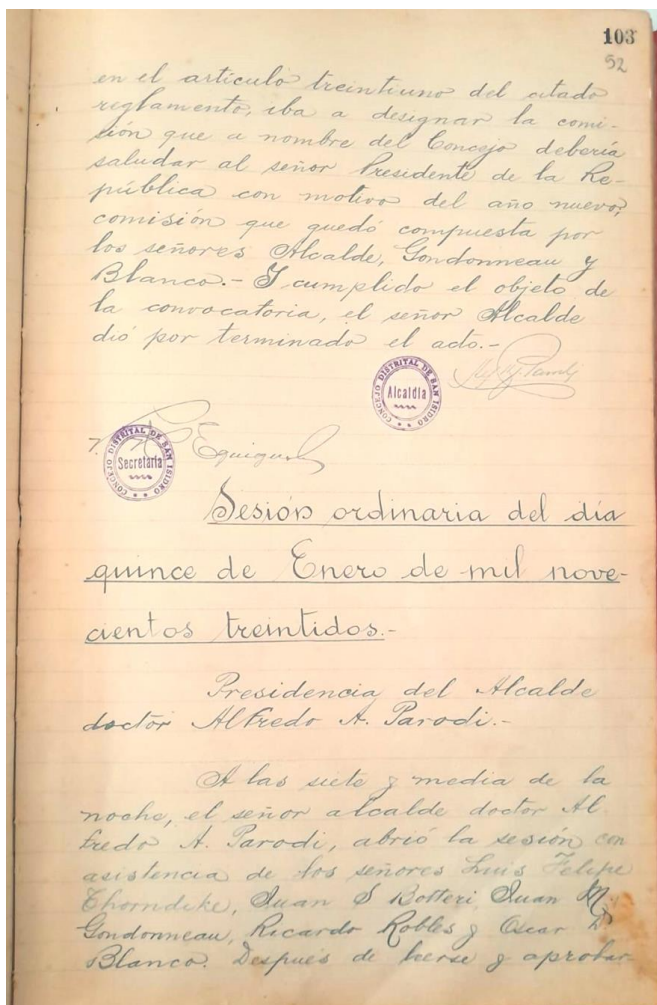 103
52
en el artículo treintiuno del citado
reglamento, iba a designar la comi-
sión que a nombre del Concejo debería
saludar al señor Presidente de la Re-
pública con motivo del año nuevo,
comisión que quedó compuesta por
los señores Alcalde, Gondonneau y
Blanco.- Y cumplido el objeto de
la convocatoria, el señor Alcalde
dió por terminado el acto.-
CONCEJO DISTRITAL DE SAN ISIDRO
Alcaldía
CONCEJO DISTRITAL DE SAN ISIDRO
Secretaría
Sesión ordinaria del día
quince de Enero de mil nove-
cientos treintidos.-
Presidencia del Alcalde
doctor Alfredo A. Parodi.-
A las siete y media de la
noche, el señor alcalde doctor Al
fredo A. Parodi, abrió la sesión con
asistencia de los señores Luis Felipe
Thorndike, Juan S Botteri, Juan M.
Gondonneau, Ricardo Robles y Oscar
Blanco. Después de leerse y aprobar-